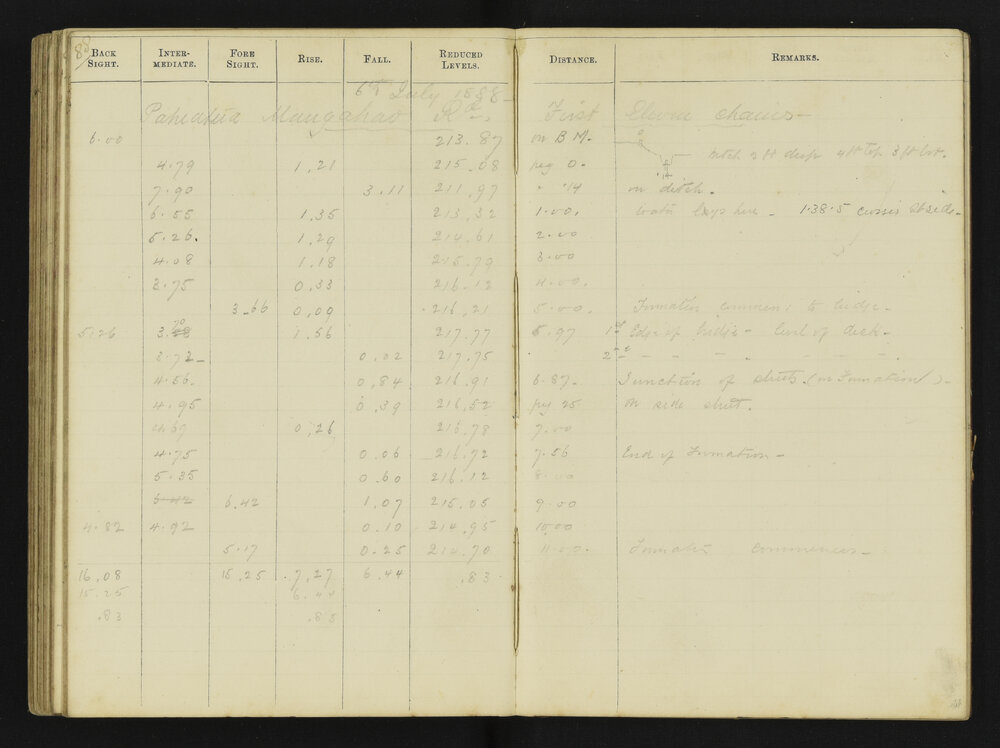 88
BACK SIGHT. INTER-MEDIATE. FORE SIGHT. RISE. FALL. REDUCED LEVELS. DISTANCE. REMARKS.
6th July 1888-
Pahiatua Mangahao Rd. First Eleven chains -
6.00 213.87 on B.M.
4.79 1.21 215.08 peg 0. ditch 2 ft deep 4 ft top 3 ft bot.
7.90 3.11 211.97 " 14 on ditch.
6.55 1.35 213.32 1.00. water here - 1.38.5 side -
5.26. 1.29 214.61 2.00
4.08 1.18 215.79 3.00
3.75 0.33 216.12 4.00.
3-66 0.09 216.21 5.00. Formation to bridge.
5.26 3.70 1.56 217.77 5.97 1st Edge of bridge - level of deck -
3.72- 0.02 217.75 2nd - - - -
4.56. 0.84 216.91 6.87- Junction of struts (on Formation) -
4.95 0.39 216.52 peg 25 on side strut.
4.69 0.26 216.78 7.00
4.75 0.06 216.72 7.56 End of Formation -
5.35 0.60 216.12 8.00
6.42 6.42 1.07 215.05 9.00
4.82 4.92 0.10 214.95 10.00
5.17 0.25 214.70 11.00. Formation commences -
16.08 15.25 7.27 6.44 .83
15.25 6.44
.83 .83